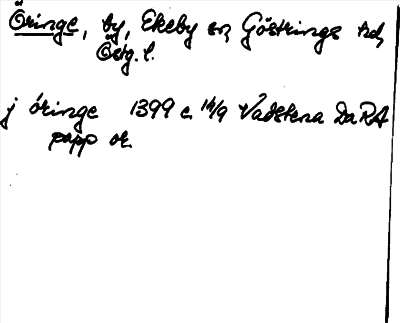 Öringe, by, Ekeby sn, Göstrings hd,
Östg. l.
j öringe 1399 e. 14/9 Vadstena DaRA
papp or.